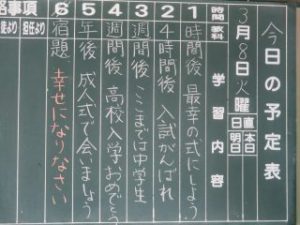 今日の予定表
3月8日火曜 直 本日
日 明日
時間 教科 学習内容
1 時間後 最幸の式にしよう
2 4時間後 入試がんばれ
3 週間後 ここまでは中学生
4 週間後 高校入学おめでとう
5 年後 成人式で会いましょう
6 宿題 幸せになりなさい
絡事項
担任より